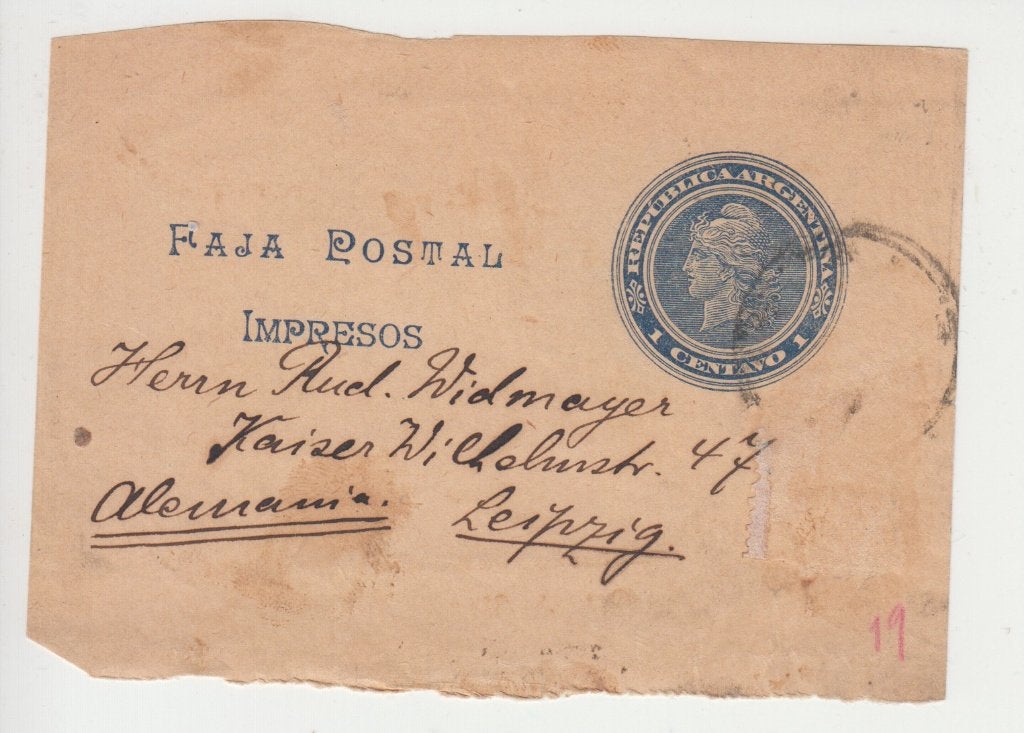 REPUBLICA ARGENTINA
1 CENTAVO 1
FAJA POSTAL
IMPRESOS
Herrn Rud. Widmayer
Kaiser Wilhelmstr. 47
Alemania.
Leipzig.
19